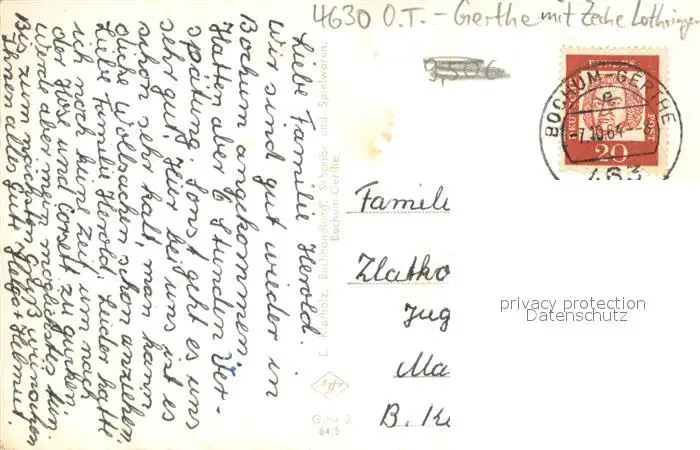 4630 O.T. - Gerthe mit Zeche Lothringen
Liebe Familie Herold.
Wir sind gut wieder in
Bochum angekommen.
Hatten aber 6 Stunden Ver-
spätung. Sonst geht es uns
sehr gut. Hier bei uns ist es
schon sehr kalt, man kann
dicke Wollsachen schon anziehen.
Liebe Familie Herold. Leider hatte
ich noch keine Zeit um nach
der Hose und Corsett zu gucken.
Werde aber mein möglichstes tun.
Bis zum nächsten Gruß wünschen
Ihnen alles Gute Helga + Helmut.
Buchhandlung, Schreib- und Spielwaren,
Bochum-Gerthe
Gthe 3
6415
DEUTSCHE BUNDESPOST
20
BOCHUM-GERTHE
e
-7.10.64 - 8
463
Famili
Zlatko
Jug
Ma
B. K
privacy protection
Datenschutz